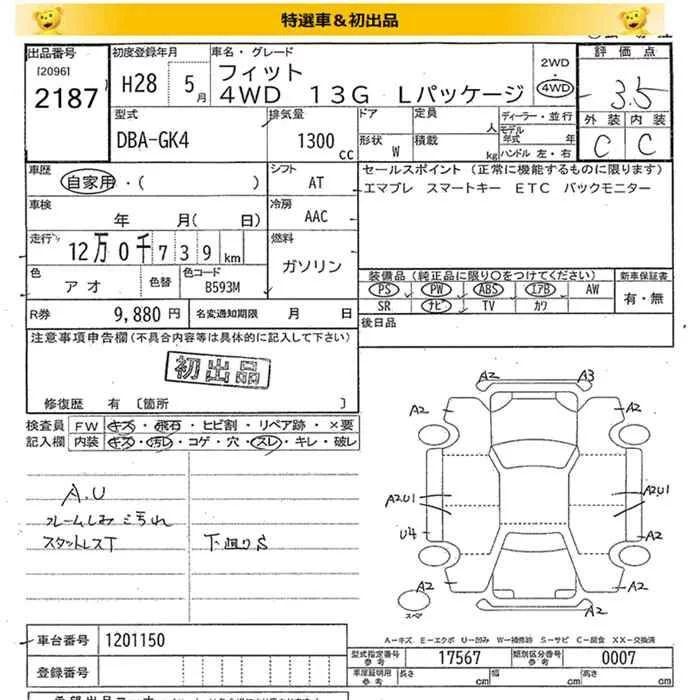 特選車&初出品
出品番号
120961
2187
初度登録年月
H28 5月
車名・グレード
フィット
4WD 13G Lパッケージ
2WD
・
4WD
評価点
3.5
外装 内装
C C
型式
DBA-GK4
排気量
1300 cc
ドア
定員
人
形状
W
積載
kg
ディーラー・並行
モデル年式 年
ハンドル 左・右
車歴
自家用・( )
シフト
AT
セールスポイント (正常に機能するものに限ります)
エマブレ スマートキー ETC バックモニター
車検
年 月( 日)
冷房
AAC
走行
12万0千739km
燃料
ガソリン
色
アオ
色替
色コード
B593M
装備品(純正品に限り○をつけてください)
PS PW ABS エアB AW
SR ナビ TV カワ
新車保証書
有・無
R券 9,880円
名変通知期限 月 日
後日品
注意事項申告欄(不具合内容等は具体的に記入して下さい)
初出品
修復歴 有 〔箇所 〕
検査員記入欄
FW キズ・飛石・ヒビ割・リペア跡・×要
内装 キズ・汚れ・コゲ・穴・スレ・キレ・破レ
A.U
フレームしみこ汚れ
スタットレスT
下廻りS
A2 A3
A2 A2
A2U1 A2U1
U4 A2
A2 A2
A2
スペア
A-キズ E-エクボ U-凹み W-補修跡 S-サビ C-腐食 XX-交換済
車台番号 1201150
登録番号
型式指定番号
参考
17567
類別区分番号
参考
0007
車庫証明用
参考
長さ cm 幅 cm 高さ cm